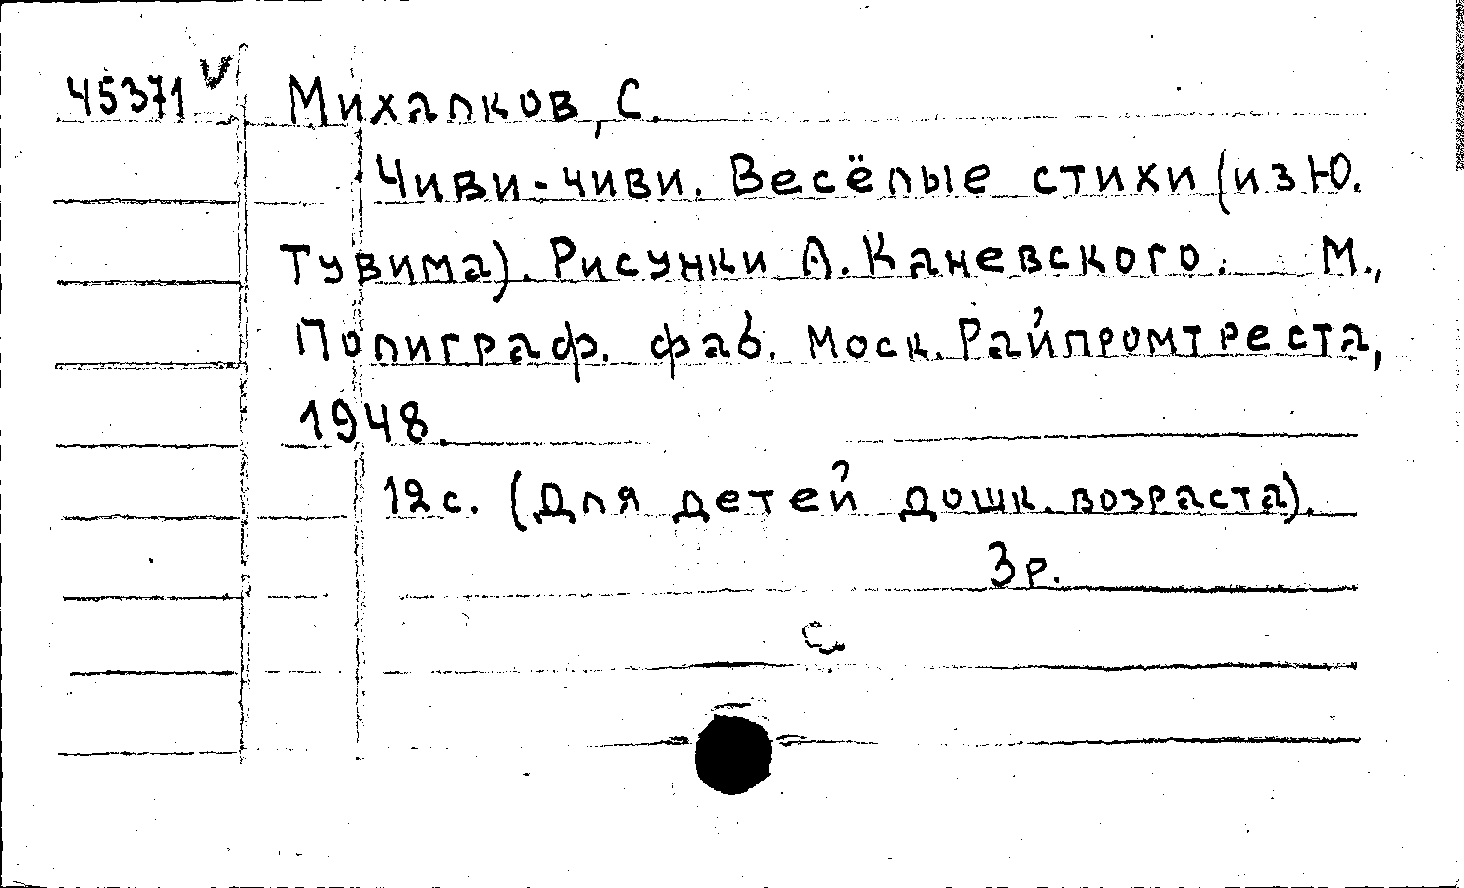 45371 V Михалков, С.
Чиви-чиви. Весёлые стихи (из Ю.
Тувима). Рисунки А. Каневского. М.,
Полиграф. фаб. Моск. Райпромтреста,
1948.
12 с. (Для детей дошк. возраста).
3 р.